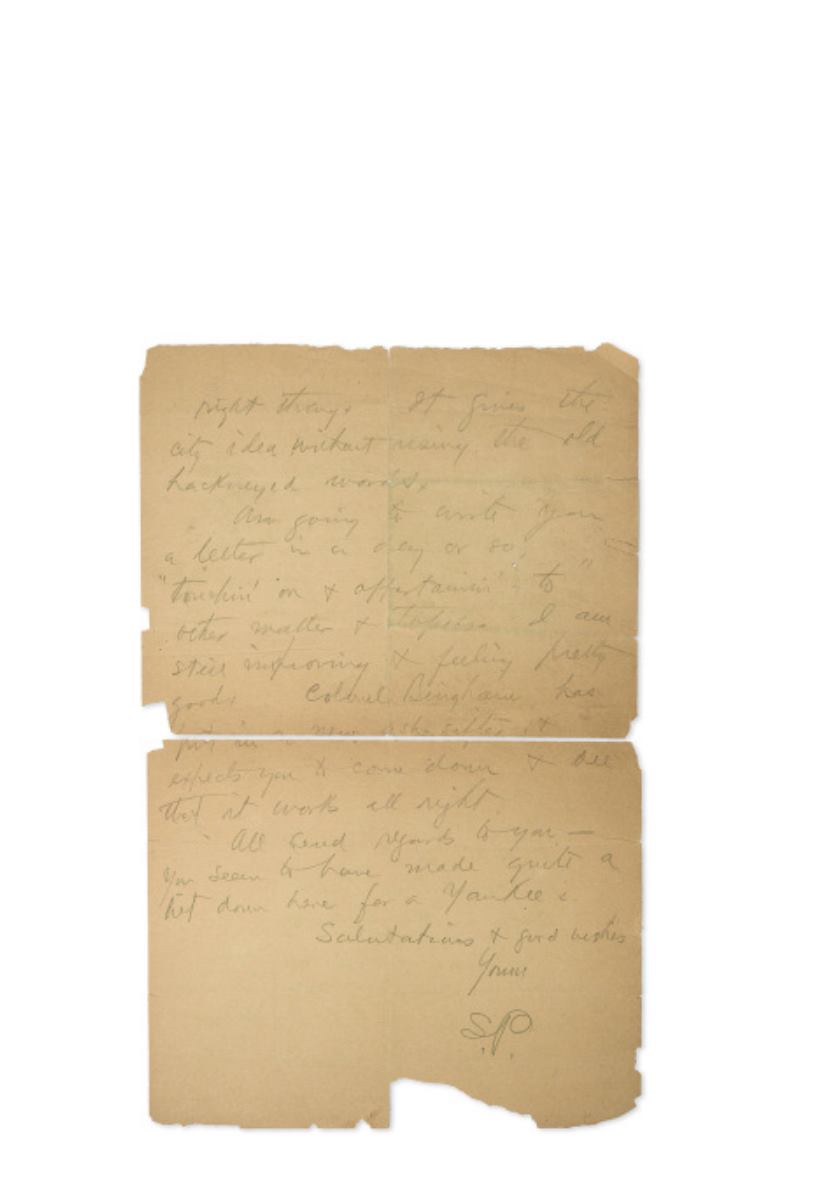 right thing. It gives the
city idea without using the old
hackneyed words.
Am going to write you
a letter in a day or so,
"touchin' on & appertainin' to"
other matter & topics. I am
still improving & feeling pretty
good. Colonel Bingham has
put in a new &
expects you to come down & see
that it works all right
All send regards to you —
you seem to have made quite a
hit down here for a Yankee.
Salutations & good wishes
Yours
S.P.